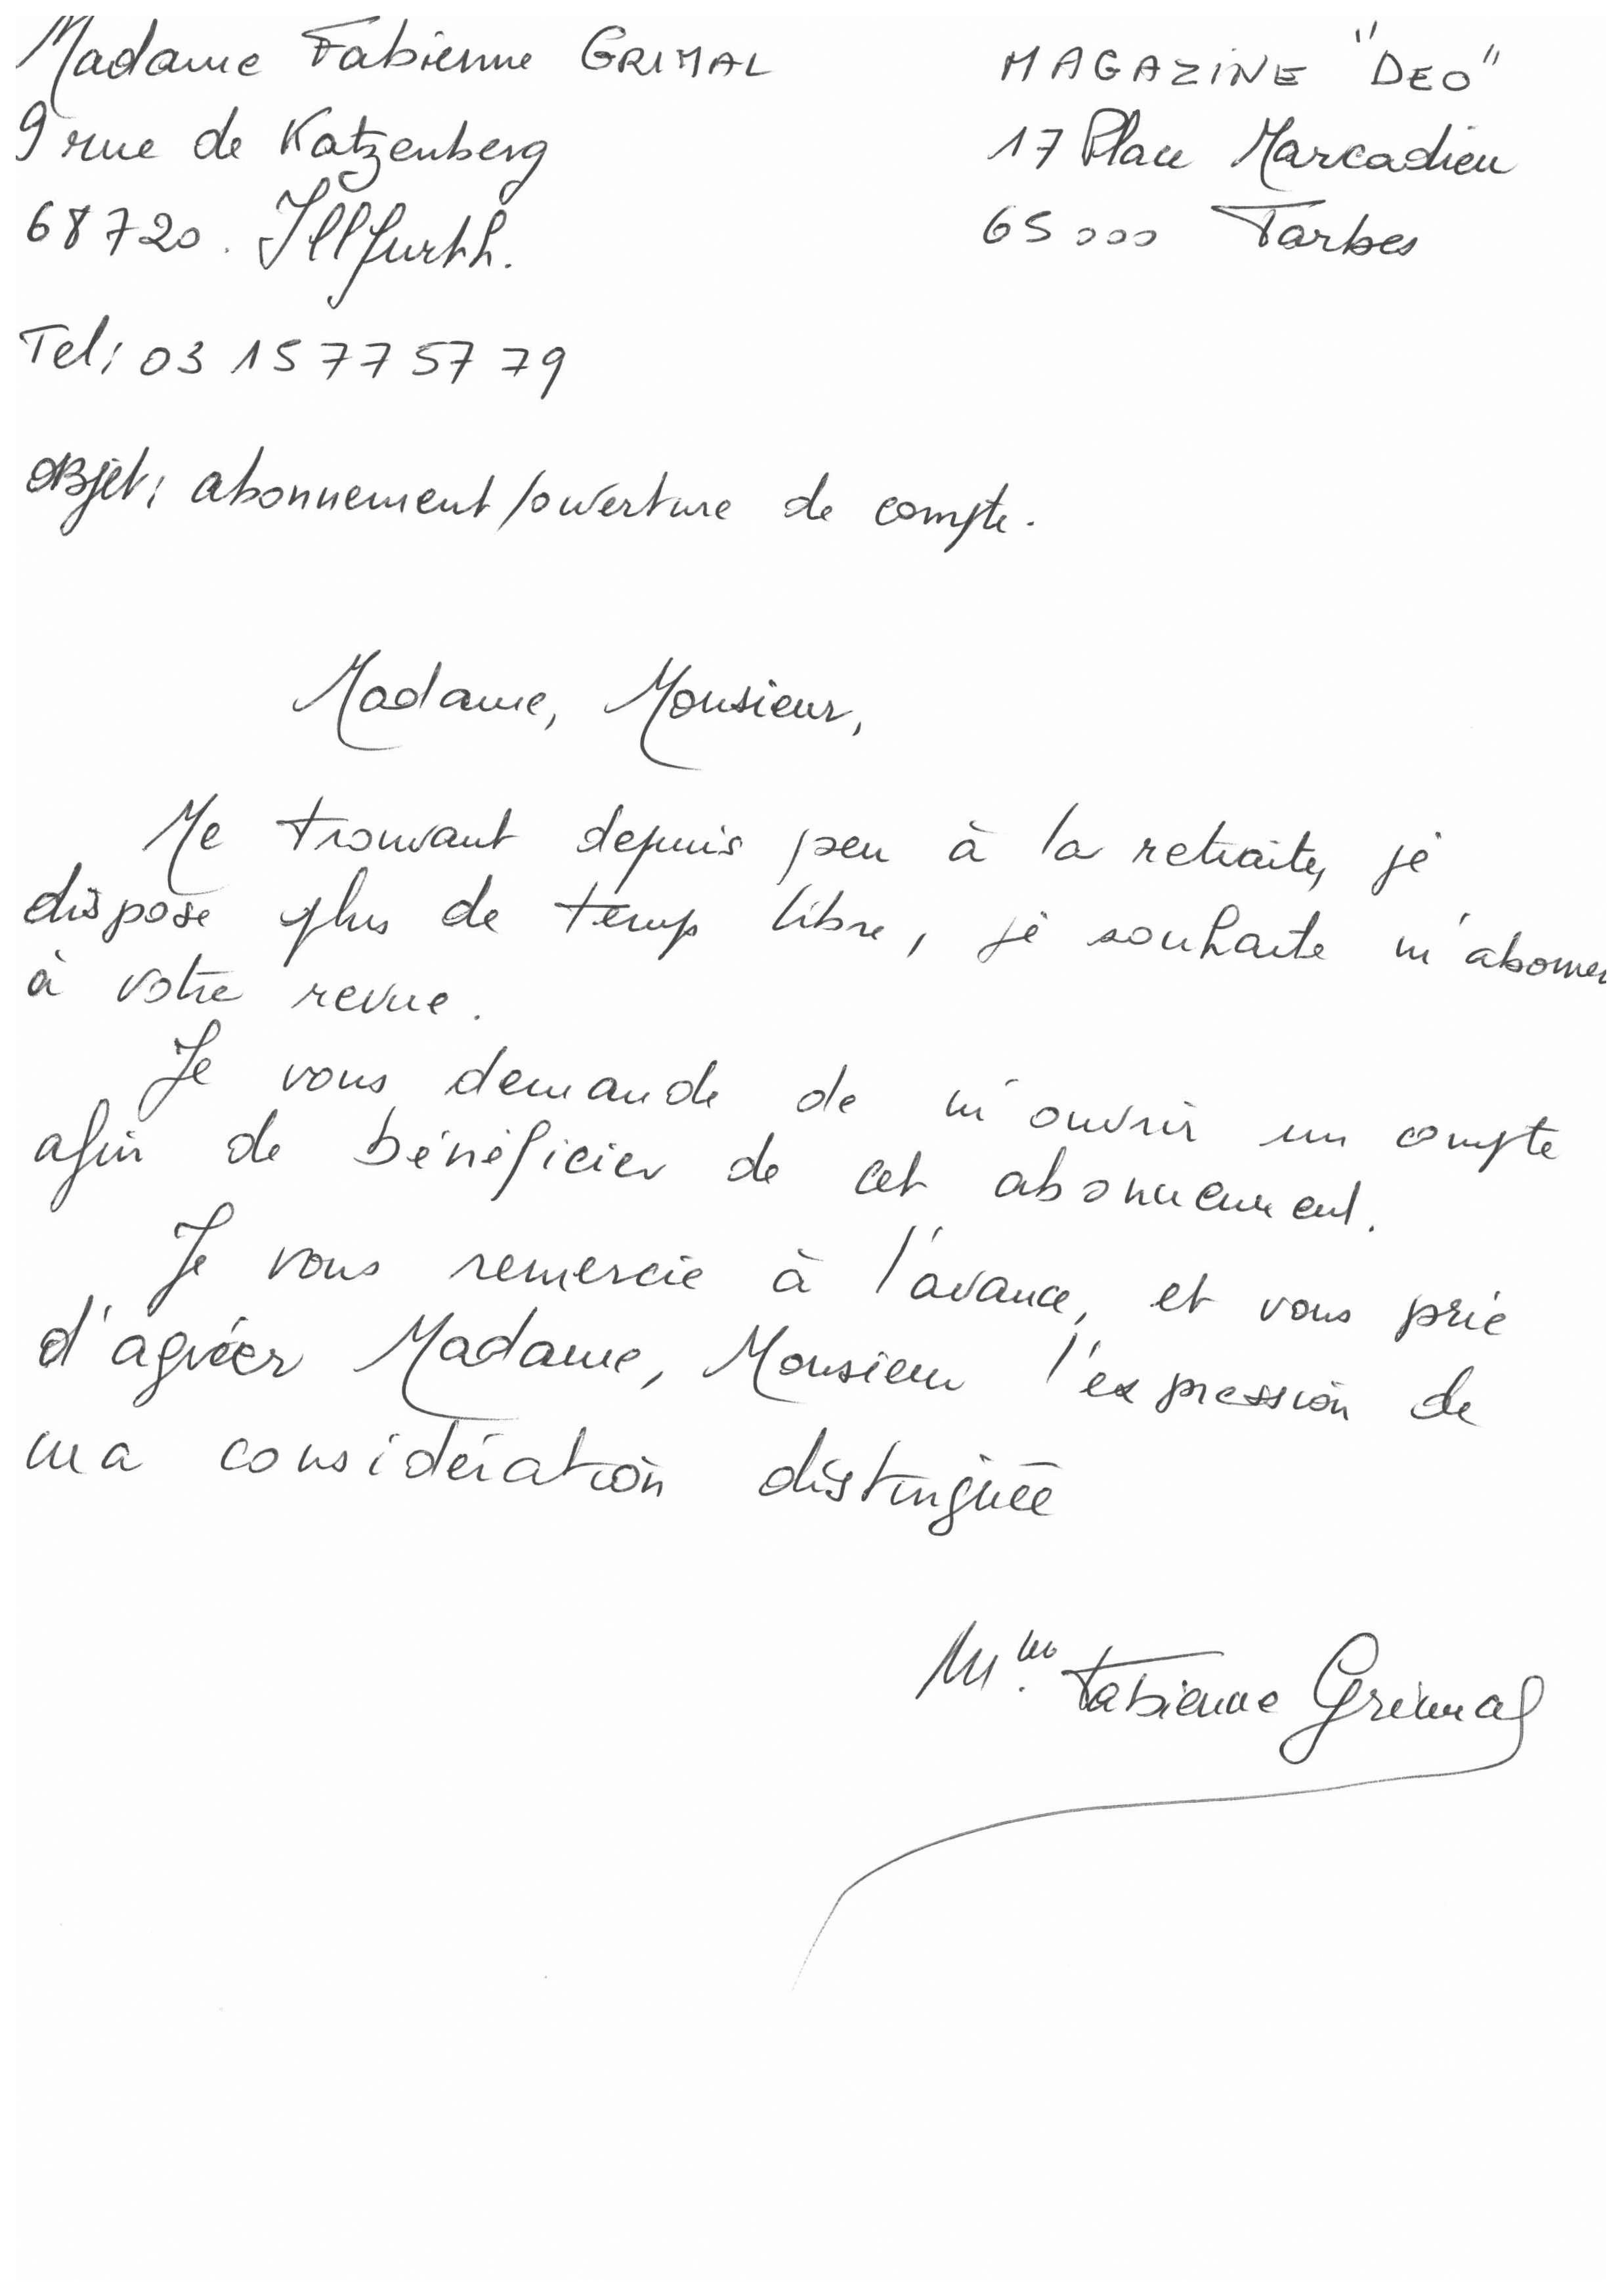 Madame Fabienne GRIMAL
9 rue de Katzenberg
68720. Illfurth.
Tel: 03 15 77 57 79
MAGAZINE "DEO"
17 Place Marcadieu
65000 Tarbes
Objet: abonnement/ouverture de compte.
Madame, Monsieur,
Me trouvant depuis peu à la retraite, je
dispose plus de temps libre, je souhaite m'abonner
à votre revue.
Je vous demande de m'ouvrir un compte
afin de bénéficier de cet abonnement.
Je vous remercie à l'avance, et vous prie
d'agréer Madame, Monsieur l'expression de
ma considération distinguée
Mme Fabienne Grimal